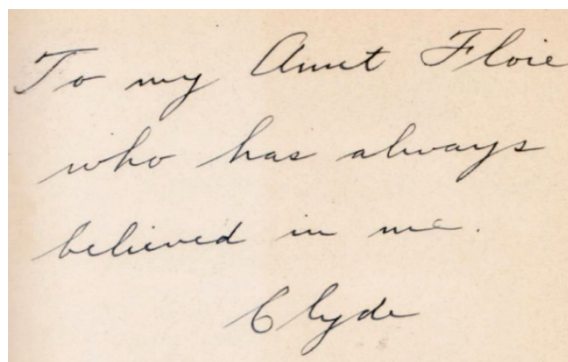 To my Aunt Floie
who has always
believed in me.
Clyde